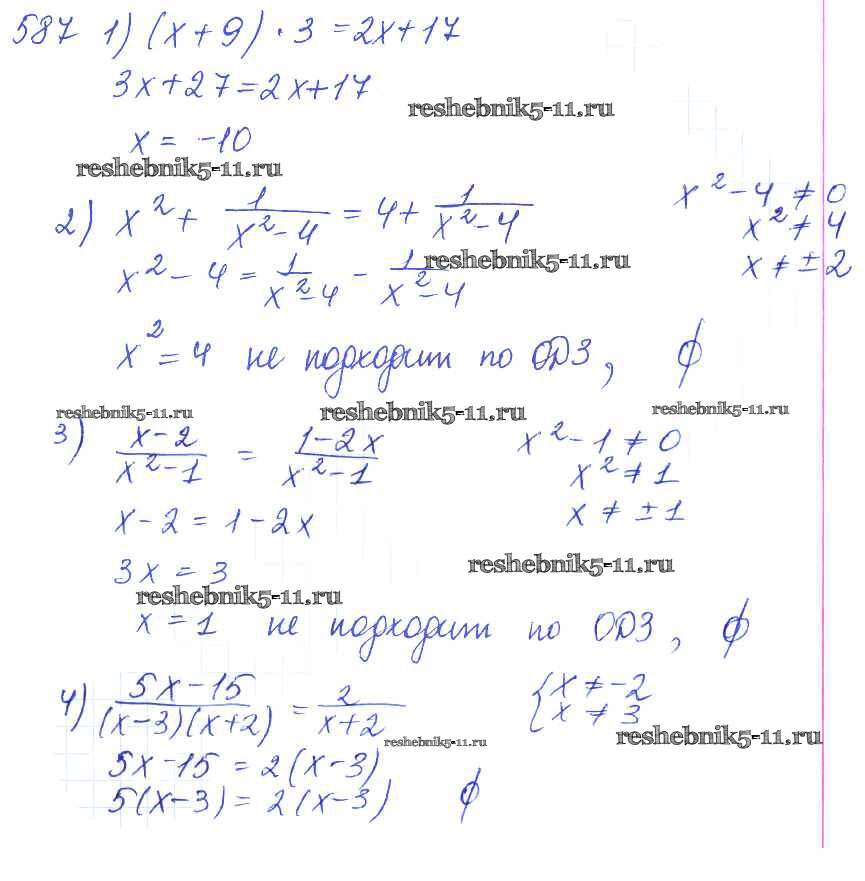 587 1) (x+9)·3 = 2x+17
3x+27=2x+17
reshebnik5-11.ru
x = -10
reshebnik5-11.ru
2) x² + 1/(x²-4) = 4 + 1/(x²-4)
x²-4 ≠ 0
x² ≠ 4
x ≠ ±2
reshebnik5-11.ru
x² - 4 = 1/(x²-4) - 1/(x²-4)
x² = 4 не подходит по ОДЗ, ∅
reshebnik5-11.ru reshebnik5-11.ru reshebnik5-11.ru
3) (x-2)/(x²-1) = (1-2x)/(x²-1)
x²-1 ≠ 0
x² ≠ 1
x ≠ ±1
x-2 = 1-2x
3x = 3
reshebnik5-11.ru
reshebnik5-11.ru
x = 1 не подходит по ОДЗ, ∅
4) (5x-15)/((x-3)(x+2)) = 2/(x+2)
{x ≠ -2
x ≠ 3
reshebnik5-11.ru
reshebnik5-11.ru
5x-15 = 2(x-3)
5(x-3) = 2(x-3) ∅